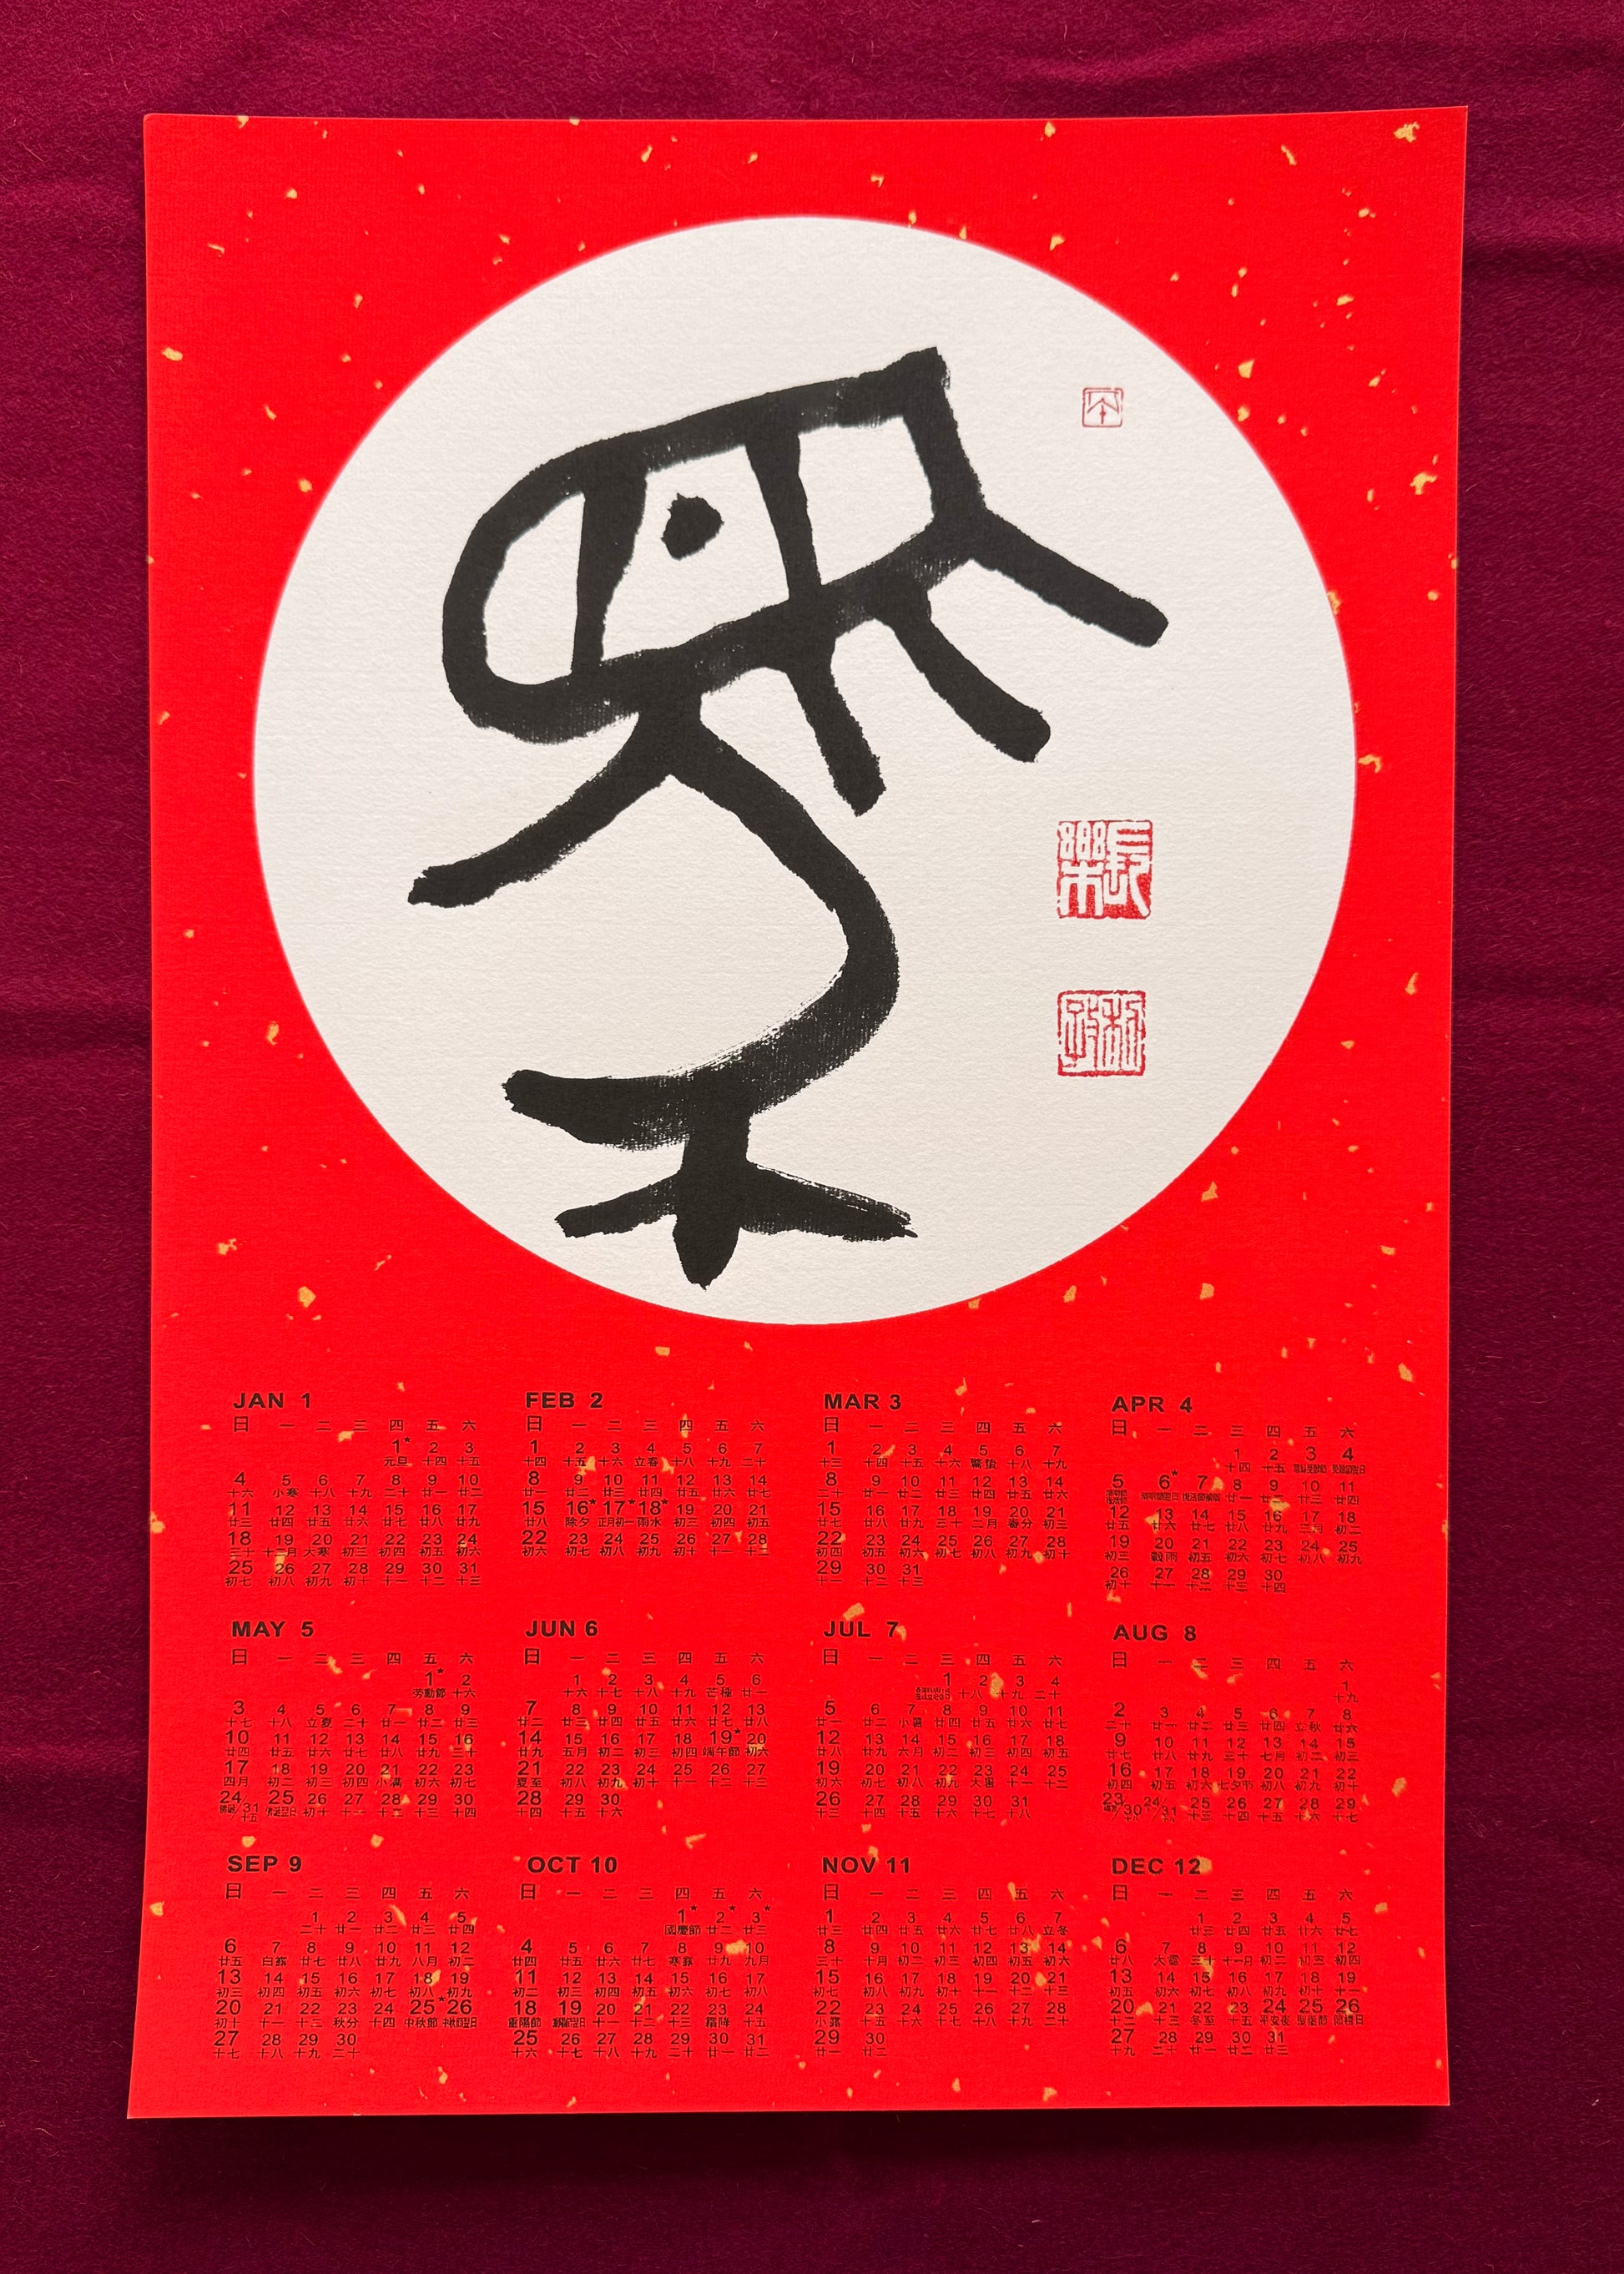 馬
長樂
JAN 1
日 一 二 三 四 五 六
1* 2 3
元旦 十四 十五
4 5 6 7 8 9 10
十六 小寒 十八 十九 二十 廿一 廿二
11 12 13 14 15 16 17
廿三 廿四 廿五 廿六 廿七 廿八 廿九
18 19 20 21 22 23 24
三十 十二月 大寒 初三 初四 初五 初六
25 26 27 28 29 30 31
初七 初八 初九 初十 十一 十二 十三
FEB 2
日 一 二 三 四 五 六
1 2 3 4 5 6 7
十四 十五 十六 立春 十八 十九 二十
8 9 10 11 12 13 14
廿一 廿二 廿三 廿四 廿五 廿六 廿七
15 16* 17* 18* 19 20 21
廿八 除夕 正月初一 雨水 初三 初四 初五
22 23 24 25 26 27 28
初六 初七 初八 初九 初十 十一 十二
MAR 3
日 一 二 三 四 五 六
1 2 3 4 5 6 7
十三 十四 十五 十六 驚蟄 十八 十九
8 9 10 11 12 13 14
二十 廿一 廿二 廿三 廿四 廿五 廿六
15 16 17 18 19 20 21
廿七 廿八 廿九 三十 二月 春分 初三
22 23 24 25 26 27 28
初四 初五 初六 初七 初八 初九 初十
29 30 31
十一 十二 十三
APR 4
日 一 二 三 四 五 六
1 2 3 4
十四 十五
5 6* 7 8 9 10 11
清明節翌日 復活節補假 廿一 廿二 廿三 廿四
12 13 14 15 16 17 18
廿五 廿六 廿七 廿八 廿九 三月 初二
19 20 21 22 23 24 25
初三 穀雨 初五 初六 初七 初八 初九
26 27 28 29 30
初十 十一 十二 十三 十四
MAY 5
日 一 二 三 四 五 六
1* 2
勞動節 十六
3 4 5 6 7 8 9
十七 十八 立夏 二十 廿一 廿二 廿三
10 11 12 13 14 15 16
廿四 廿五 廿六 廿七 廿八 廿九 三十
17 18 19 20 21 22 23
四月 初二 初三 初四 小滿 初六 初七
24/31 25 26 27 28 29 30
佛誕/十五 佛誕翌日 初十 十一 十二 十三 十四
JUN 6
日 一 二 三 四 五 六
1 2 3 4 5 6
十六 十七 十八 十九 芒種 廿一
7 8 9 10 11 12 13
廿二 廿三 廿四 廿五 廿六 廿七 廿八
14 15 16 17 18 19* 20
廿九 五月 初二 初三 初四 端午節 初六
21 22 23 24 25 26 27
夏至 初八 初九 初十 十一 十二 十三
28 29 30
十四 十五 十六
JUL 7
日 一 二 三 四 五 六
1 2 3 4
十八 十九 二十
5 6 7 8 9 10 11
廿一 廿二 小暑 廿四 廿五 廿六 廿七
12 13 14 15 16 17 18
廿八 廿九 六月 初二 初三 初四 初五
19 20 21 22 23 24 25
初六 初七 初八 初九 大暑 十一 十二
26 27 28 29 30 31
十三 十四 十五 十六 十七 十八
AUG 8
日 一 二 三 四 五 六
1
十九
2 3 4 5 6 7 8
二十 廿一 廿二 廿三 廿四 立秋 廿六
9 10 11 12 13 14 15
廿七 廿八 廿九 三十 七月 初二 初三
16 17 18 19 20 21 22
初四 初五 初六 七夕節 初八 初九 初十
23/30 24/31 25 26 27 28 29
十三 十四 十五 十六 十七
SEP 9
日 一 二 三 四 五 六
1 2 3 4 5
二十 廿一 廿二 廿三 廿四
6 7 8 9 10 11 12
廿五 白露 廿七 廿八 廿九 八月 初二
13 14 15 16 17 18 19
初三 初四 初五 初六 初七 初八 初九
20 21 22 23 24 25* 26
初十 十一 十二 秋分 十四 中秋節 中秋翌日
27 28 29 30
十七 十八 十九 二十
OCT 10
日 一 二 三 四 五 六
1* 2* 3*
國慶節 廿二 廿三
4 5 6 7 8 9 10
廿四 廿五 廿六 廿七 寒露 廿九 九月
11 12 13 14 15 16 17
初二 初三 初四 初五 初六 初七 初八
18 19 20 21 22 23 24
重陽節 重陽翌日 十一 十二 十三 霜降 十五
25 26 27 28 29 30 31
十六 十七 十八 十九 二十 廿一 廿二
NOV 11
日 一 二 三 四 五 六
1 2 3 4 5 6 7
廿三 廿四 廿五 廿六 廿七 廿八 立冬
8 9 10 11 12 13 14
三十 十月 初二 初三 初四 初五 初六
15 16 17 18 19 20 21
初七 初八 初九 初十 十一 十二 十三
22 23 24 25 26 27 28
小雪 十五 十六 十七 十八 十九 二十
29 30
廿一 廿二
DEC 12
日 一 二 三 四 五 六
1 2 3 4 5
廿三 廿四 廿五 廿六 廿七
6 7 8 9 10 11 12
廿八 大雪 三十 十一月 初二 初三 初四
13 14 15 16 17 18 19
初五 初六 初七 初八 初九 初十 十一
20 21 22 23 24 25 26
十二 十三 冬至 十五 平安夜 聖誕節 節禮日
27 28 29 30 31
十九 二十 廿一 廿二 廿三